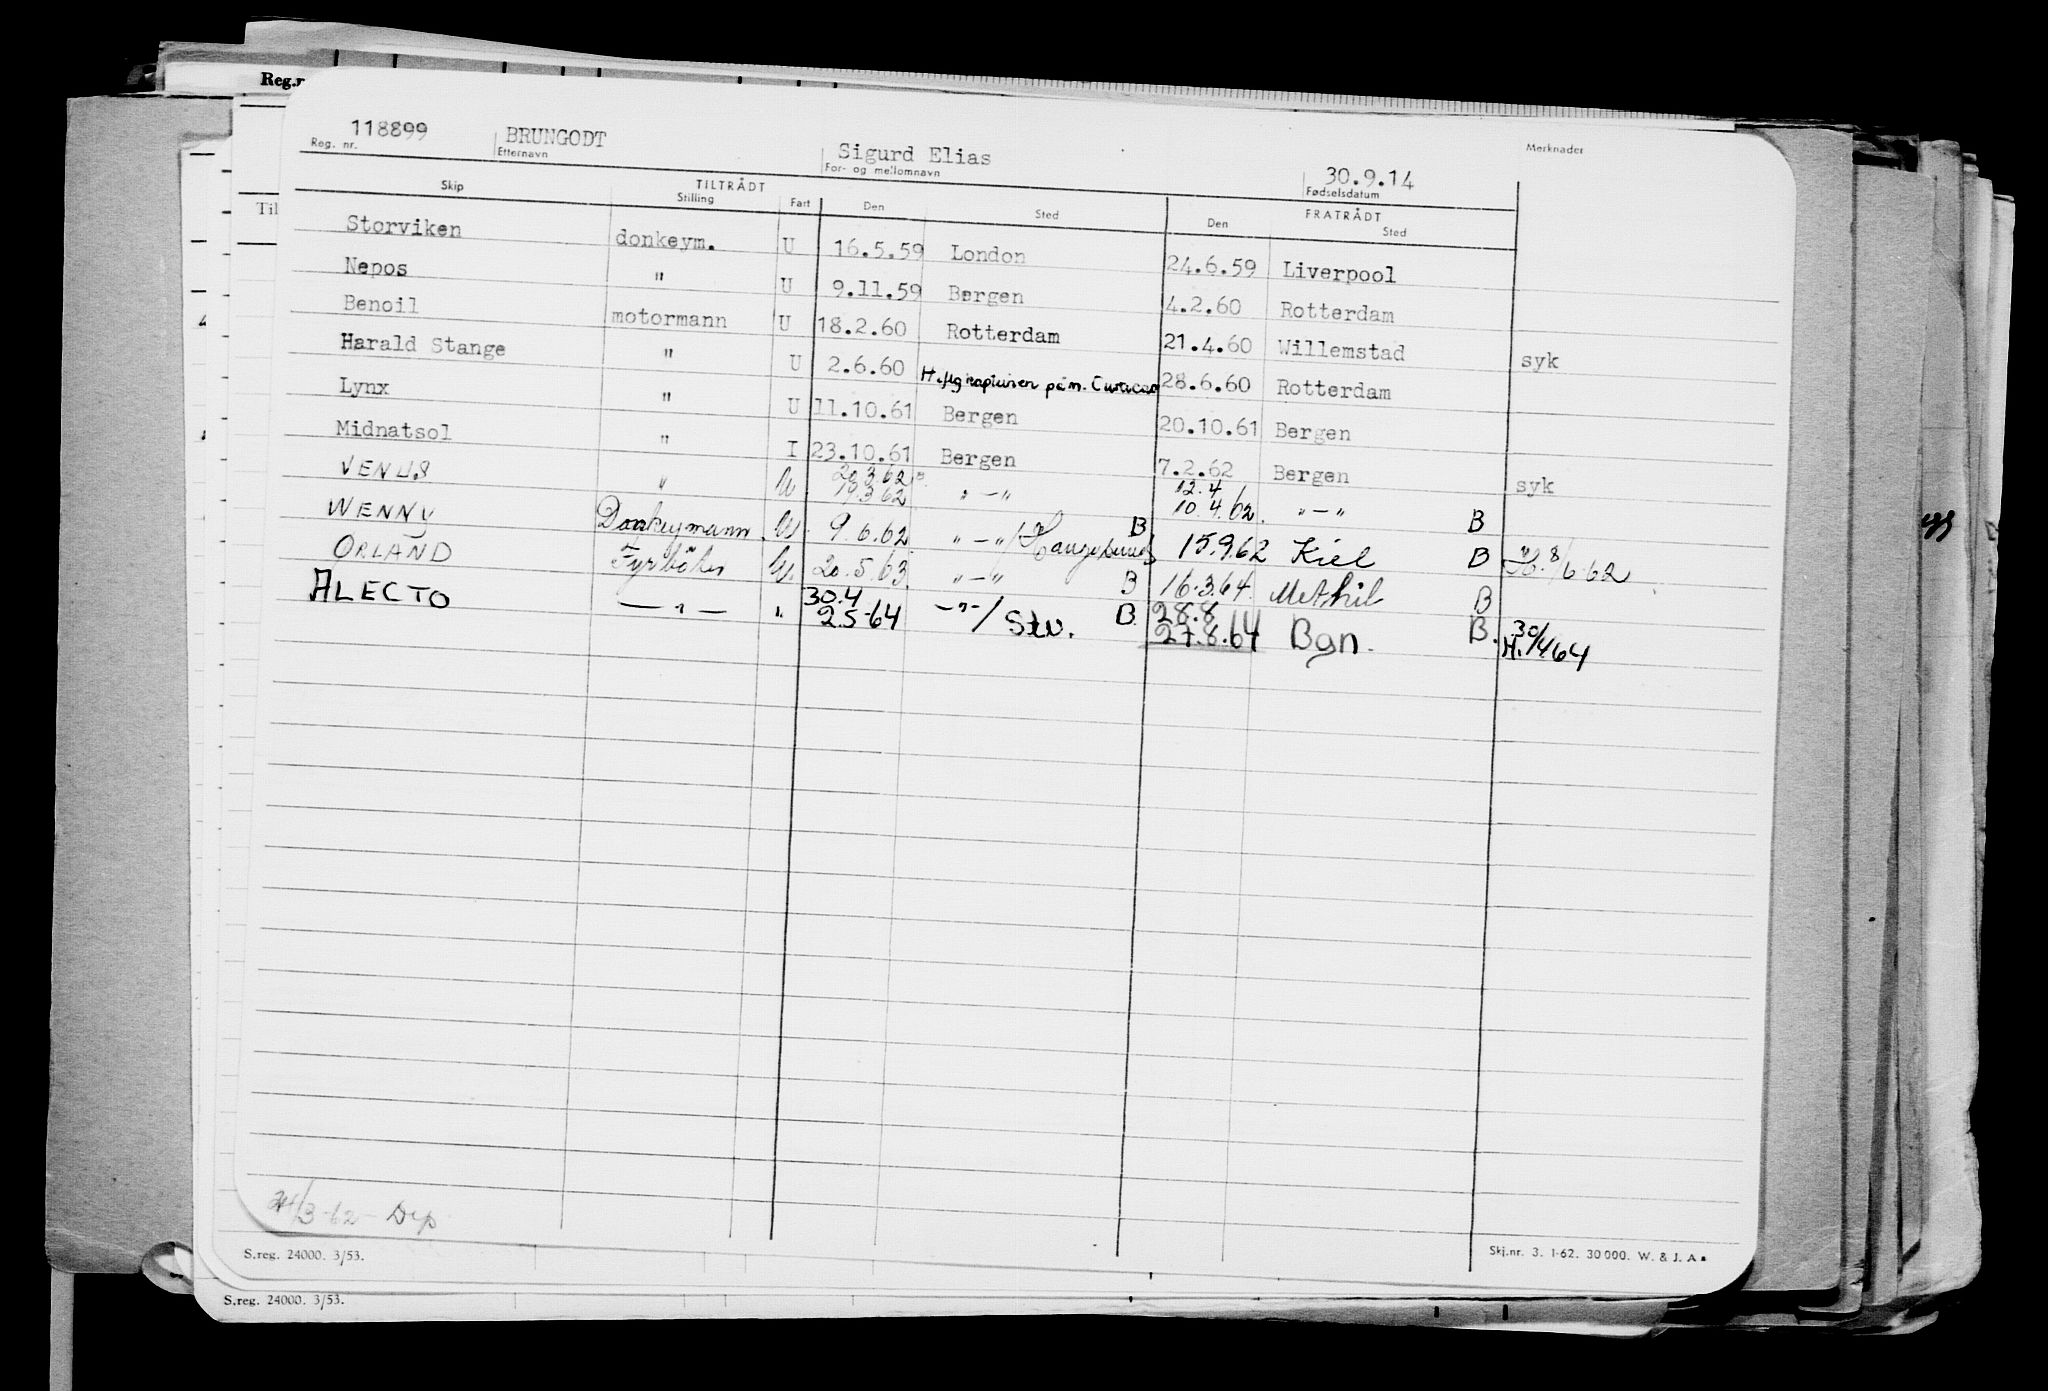 Reg.n
118899 BRUNGODT Sigurd Elias 30.9.14
Reg. nr. Etternavn For- og mellomnavn Fødselsdatum Merknader
TILTRÅDT FRATRÅDT
Skip Stilling Fart Den Sted Den Sted
Til
Storviken donkeym. U 16.5.59 London 24.6.59 Liverpool
Nepos " U 9.11.59 Bergen 4.2.60 Rotterdam
Benoil motormann U 18.2.60 Rotterdam 21.4.60 Willemstad syk
Harald Stange " U 2.6.60 på m. Curacao 28.6.60 Rotterdam
Lynx " U 11.10.61 Bergen 20.10.61 Bergen
Midnatsol " I 23.10.61 Bergen 7.2.62 Bergen syk
20.3.62 12.4
VENUS " U. 19.3.62 " — " 10.4.62. " — "
WENNY Donkeymann U. 9.6.62 " — " / Haugesund B 15.9.62 Kiel B H. 8/6-62
ORLAND Fyrbøter U. 20.5.63 " — " B 16.3.64. Methil B
30.4 28.8
ALECTO — " — " 2.5-64 — " — / Stv. B 27.8.64 Bgn. B. H. 30/4.64
24/3-62 - Dep
S.reg. 24000. 3/53. Skj.nr. 3. 1-62. 30000. W. & J. A.
S.reg. 24000. 3/53.